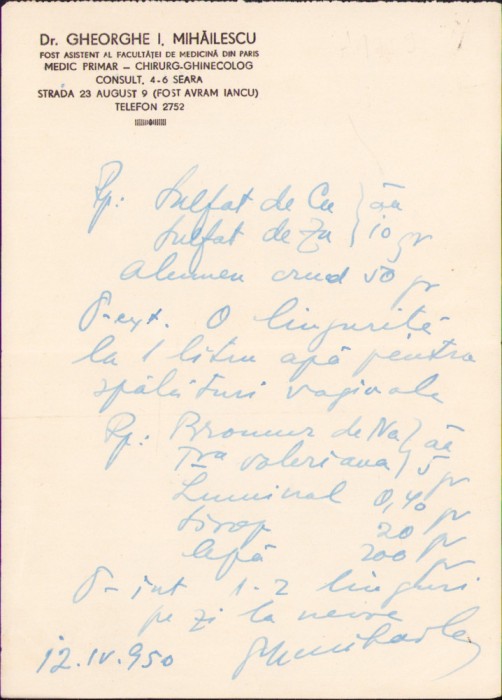 Dr. GHEORGHE I. MIHĂILESCU
FOST ASISTENT AL FACULTĂŢEI DE MEDICINĂ DIN PARIS
MEDIC PRIMAR — CHIRURG-GHINECOLOG
CONSULT. 4-6 SEARA
STRADA 23 AUGUST 9 (FOST AVRAM IANCU)
TELEFON 2752
Rp: Sulfat de Cu } āā
Sulfat de Zn } 10 gr
Alumen crud 50 gr
D-ext. O linguriță
la 1 litru apă pentru
spălături vaginale
Rp: Bromur de Na } āā
Tra valeriana } 5 gr
Luminal 0,40 gr
Sirop 20 gr
Apă 200 gr
D-int 1-2 linguri
pe zi la nevoe
12.IV.950